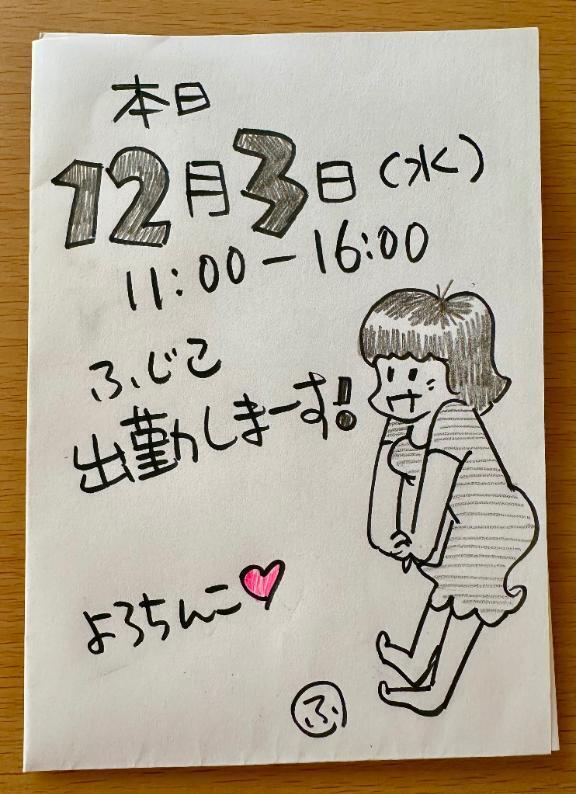 本日
12月3日(水)
11:00-16:00
ふじこ
出勤しまーす!
よろちんこ
ふ